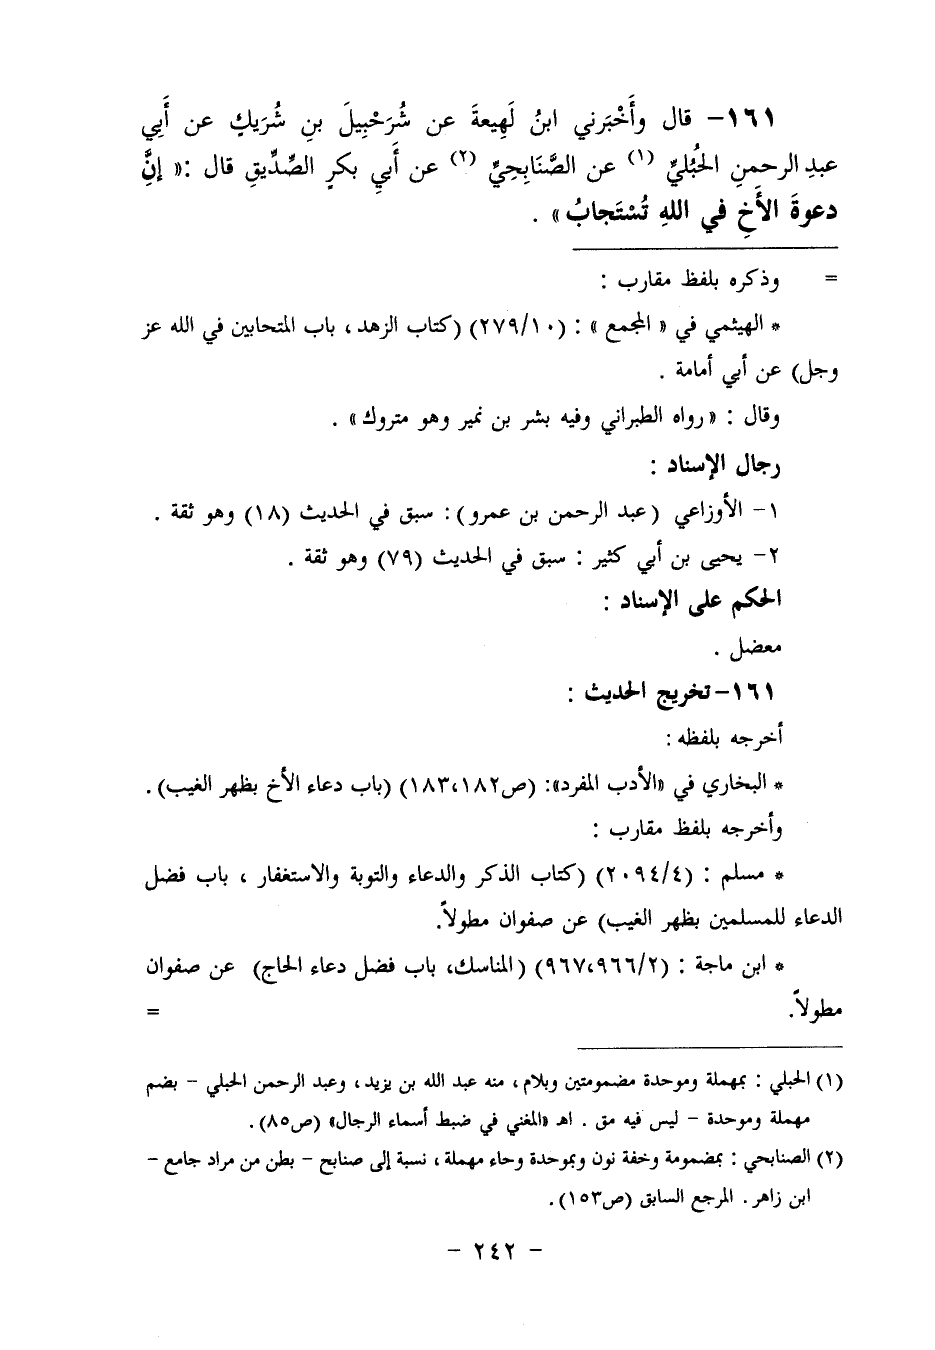 ١٦١- قال وأَخْبَرني ابنُ لَهِيعةَ عن شُرَحْبِيلَ بنِ شُرَيكٍ عن أَبِي
عبدِ الرحمنِ الحُبُليِّ (١) عن الصَّنَابِحِيِّ (٢) عن أَبي بكرٍ الصِّدِّيقِ قال :« إنَّ
دعوةَ الأَخِ في اللهِ تُسْتَجابُ» .
= وذكره بلفظ مقارب :
* الهيثمي في « المجمع » : (٢٧٩/١٠) (كتاب الزهد ، باب المتحابين في الله عز
وجل) عن أبي أمامة .
وقال : « رواه الطبراني وفيه بشر بن نمير وهو متروك» .
رجال الإسناد :
١- الأوزاعي (عبد الرحمن بن عمرو) : سبق في الحديث (١٨) وهو ثقة .
٢- يحيى بن أبي كثير : سبق في الحديث (٧٩) وهو ثقة .
الحكم على الإسناد :
معضل .
١٦١- تخريج الحديث :
أخرجه بلفظه :
* البخاري في «الأدب المفرد»: (ص١٨٢،١٨٣) (باب دعاء الأخ بظهر الغيب) .
وأخرجه بلفظ مقارب :
* مسلم : (٢٠٩٤/٤) (كتاب الذكر والدعاء والتوبة والاستغفار ، باب فضل
الدعاء للمسلمين بظهر الغيب) عن صفوان مطولاً.
* ابن ماجة : (٩٦٧،٩٦٦/٢) (المناسك، باب فضل دعاء الحاج) عن صفوان
مطولاً. =
(١) الحبلي : بمهملة وموحدة مضمومتين وبلام ، منه عبد الله بن يزيد ، وعبد الرحمن الحبلي - بضم
مهملة وموحدة - ليس فيه مق . اهـ «المغني في ضبط أسماء الرجال» (ص٨٥).
(٢) الصنابحي : بمضمومة وخفة نون وبموحدة وحاء مهملة ، نسبة إلى صنابح - بطن من مراد جامع -
ابن زاهر . المرجع السابق (ص١٥٣).
- ٢٤٢ -